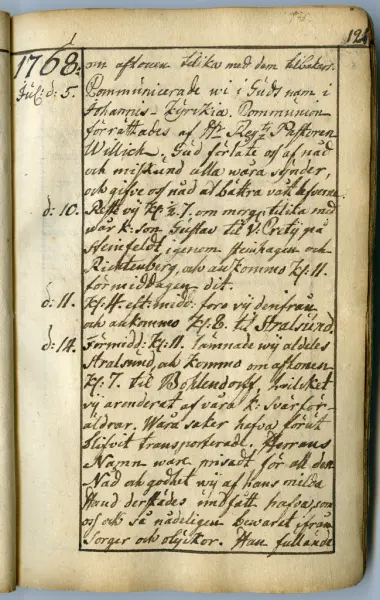 124
1768:
om aftonen tilika med dem tilbakars.
Jul: d: 5. Communicerade wi i Guds namn i
Johannis-Kyrikia. Communion
förrättades af Hr Reg:ts Pastoren
Willich. Gud förlåte oss af nåd
och miskund alla wåra synder,
och gifve oss nåd at bättra vårt lefverne.
d: 10. Reste vij kl: 1/2 7. om morg: tilika med
wår k: son Gustav til V. Pretij på
Steinfeldt igenom Steinhagen och
Richtenberg, och ankommo kl: 11.
förmiddagen dit.
d: 11. kl: 4. eft: midd: foro vij denfrån
och ankommo kl: 8. til Stralsund.
d: 14. Förmidd: kl: 11. lämnade wij aldeles
Stralsund, och kommo om aftonen
kl: 7. til Bohlendorff, hvilket
vij arenderat af våra k: Svärför-
äldrar. Wåra saker hafva förut
blifvit transporterade. Herrans
Namn ware prisadt för all den
Nåd och godhet wij af hans milda
Hand derstädes undfått hafva, som
oss ock så nådeligen bewarat ifrån
Sorger och olyckor. Han fullände